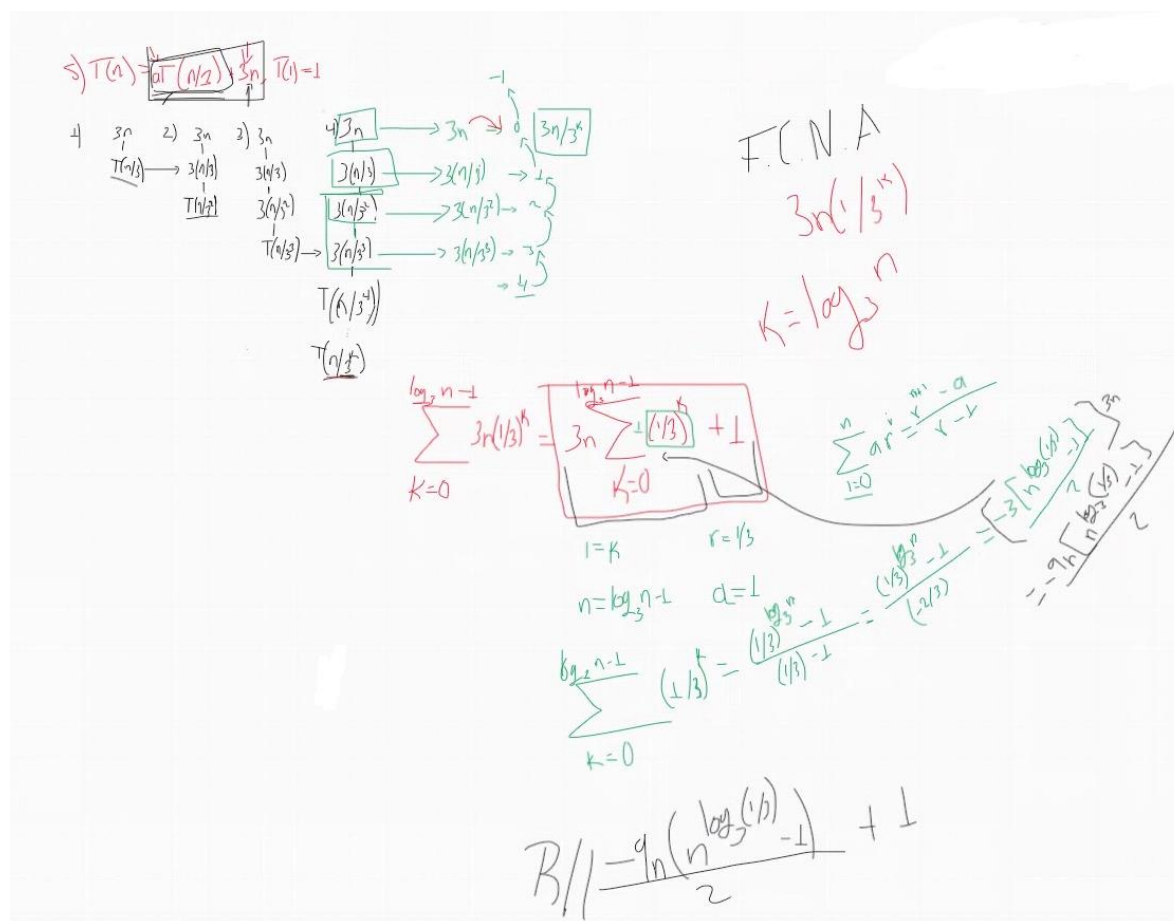 5) T(n) = aT(n/2) + 3n, T(1)=1
1) 3n
T(n/3)
2) 3n
3(n/3)
T(n/3²)
3) 3n
3(n/3)
3(n/3²)
T(n/3³)
4) 3n → 3n → 0
3(n/3) → 3(n/3) → 1
3(n/3²) → 3(n/3²) → 2
3(n/3³) → 3(n/3³) → 3
→ 4
-1
3n/3^k
T(n/3⁴)
T(n/3^k)
F.C.N.A
3n(1/3^k)
K = log₃ n
log₃ n-1
∑ 3n(1/3)^k = 3n ∑ 1 (1/3)^k + 1
K=0
log₃ n-1
K=0
n
∑ ar^i = r^(n+1) - a / r - 1
i=0
i=k
r=1/3
n=log₃ n-1
a=1
log₃ n-1
∑ (1/3)^k = (1/3)^(log₃ n) - 1 / (1/3) - 1 = (1/3)^(log₃ n) - 1 / (-2/3) = [-3[n^(log₃(1/3)) - 1] / 2] 3n
k=0
= -9n[n^(log₃(1/3)) - 1] / 2
R// -9n(n^(log₃(1/3)) - 1) / 2 + 1